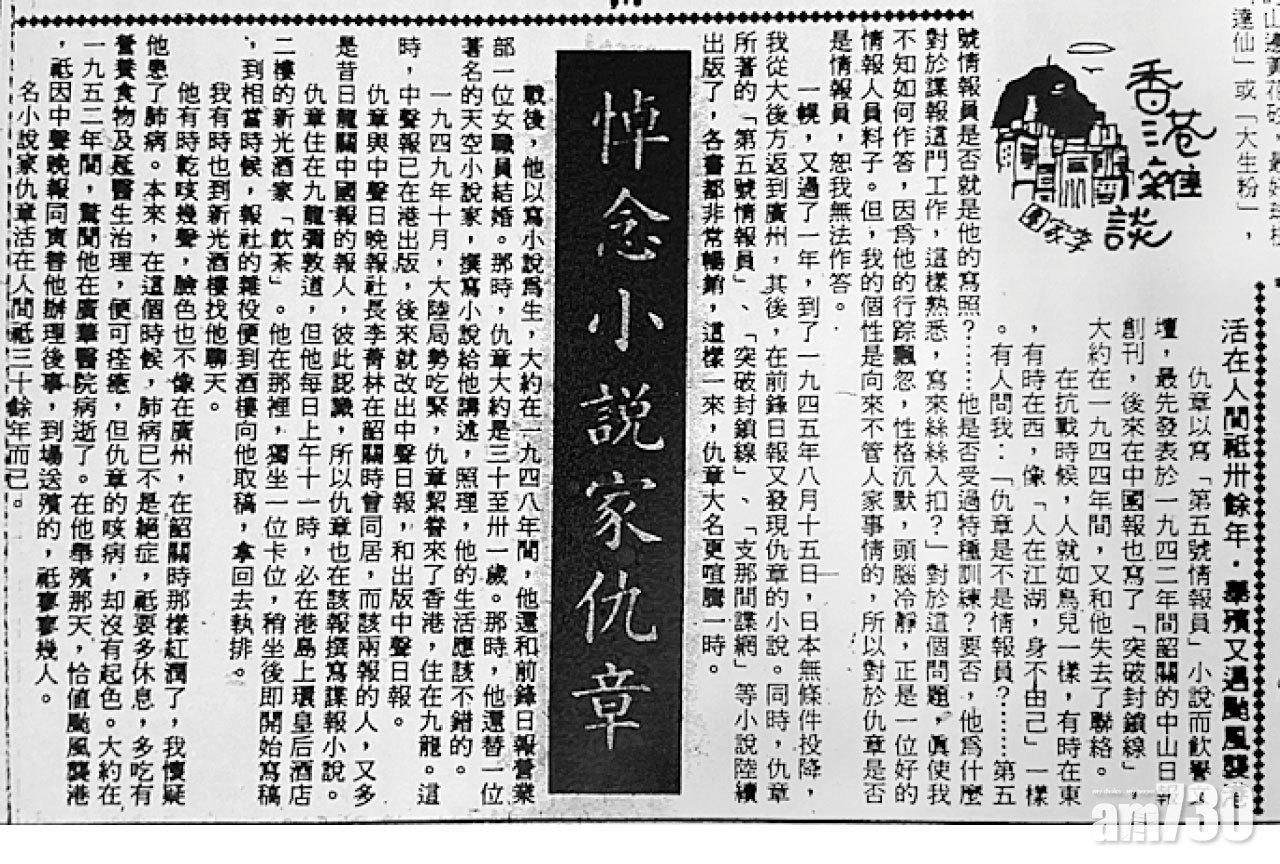 達仙」或「大生粉」，
香港雜談
李家園
活在人間祗卅餘年．舉殯又遇颱風襲港
仇章以寫「第五號情報員」小說而飲譽文
壇，最先發表於一九四二年間韶關的中山日報
創刊，後來在中國報也寫了「突破封鎖線」，
大約在一九四四年間，又和他失去了聯絡。
在抗戰時候，人就如鳥兒一樣，有時在東
，有時在西，像「人在江湖，身不由己」一樣
。有人問我：「仇章是不是情報員？……第五
號情報員是否就是他的寫照？……他是否受過特種訓練？要否，他爲什麼
對於諜報這門工作，這樣熟悉，寫來絲絲入扣？」對於這個問題，眞使我
不知如何作答，因爲他的行踪飄忽，性格沉默，頭腦冷靜，正是一位好的
情報人員料子。但，我的個性是向來不管人家事情的，所以對於仇章是否
是情報員，恕我無法作答。
一幌，又過了一年，到了一九四五年八月十五日，日本無條件投降，
我從大後方返到廣州，其後，在前鋒日報又發現仇章的小說。同時，仇章
所著的「第五號情報員」、「突破封鎖線」、「支那間諜網」等小說陸續
出版了，各書都非常暢銷，這樣一來，仇章大名更喧騰一時。
悼念小說家仇章
戰後，他以寫小說爲生，大約在一九四八年間，他還和前鋒日報營業
部一位女職員結婚。那時，仇章大約是三十至卅一歲。那時，他還替一位
著名的天空小說家，撰寫小說給他講述，照理，他的生活應該不錯的。
一九四九年十月，大陸局勢吃緊，仇章絜眷來了香港，住在九龍。這
時，中聲報已在港出版，後來就改出中聲日報，和出版中聲日報。
仇章與中聲日晚報社長李菁林在韶關時曾同居，而該兩報的人，又多
是昔日韶關中國報的報人，彼此認識，所以仇章也在該報撰寫諜報小說。
仇章住在九龍彌敦道，但他每日上午十一時，必在港島上環皇后酒店
二樓的新光酒家「飲茶」。他在那裡，獨坐一位卡位，稍坐後即開始寫稿
，到相當時候，報社的雜役便到酒樓向他取稿，拿回去執排。
我有時也到新光酒樓找他聊天。
他有時乾咳幾聲，臉色也不像在廣州，在韶關時那樣紅潤了，我懷疑
他患了肺病。本來，在這個時候，肺病已不是絕症，祗要多休息，多吃有
營養食物及延醫生治理，便可痊癒，但仇章的咳病，却沒有起色。大約在
一九五二年間，驚聞他在廣華醫院病逝了。在他舉殯那天，恰值颱風襲港
，祗因中聲晚報同寅替他辦理後事，到場送殯的，祗寥寥幾人。
名小說家仇章活在人間祗三十餘年而已。
am730